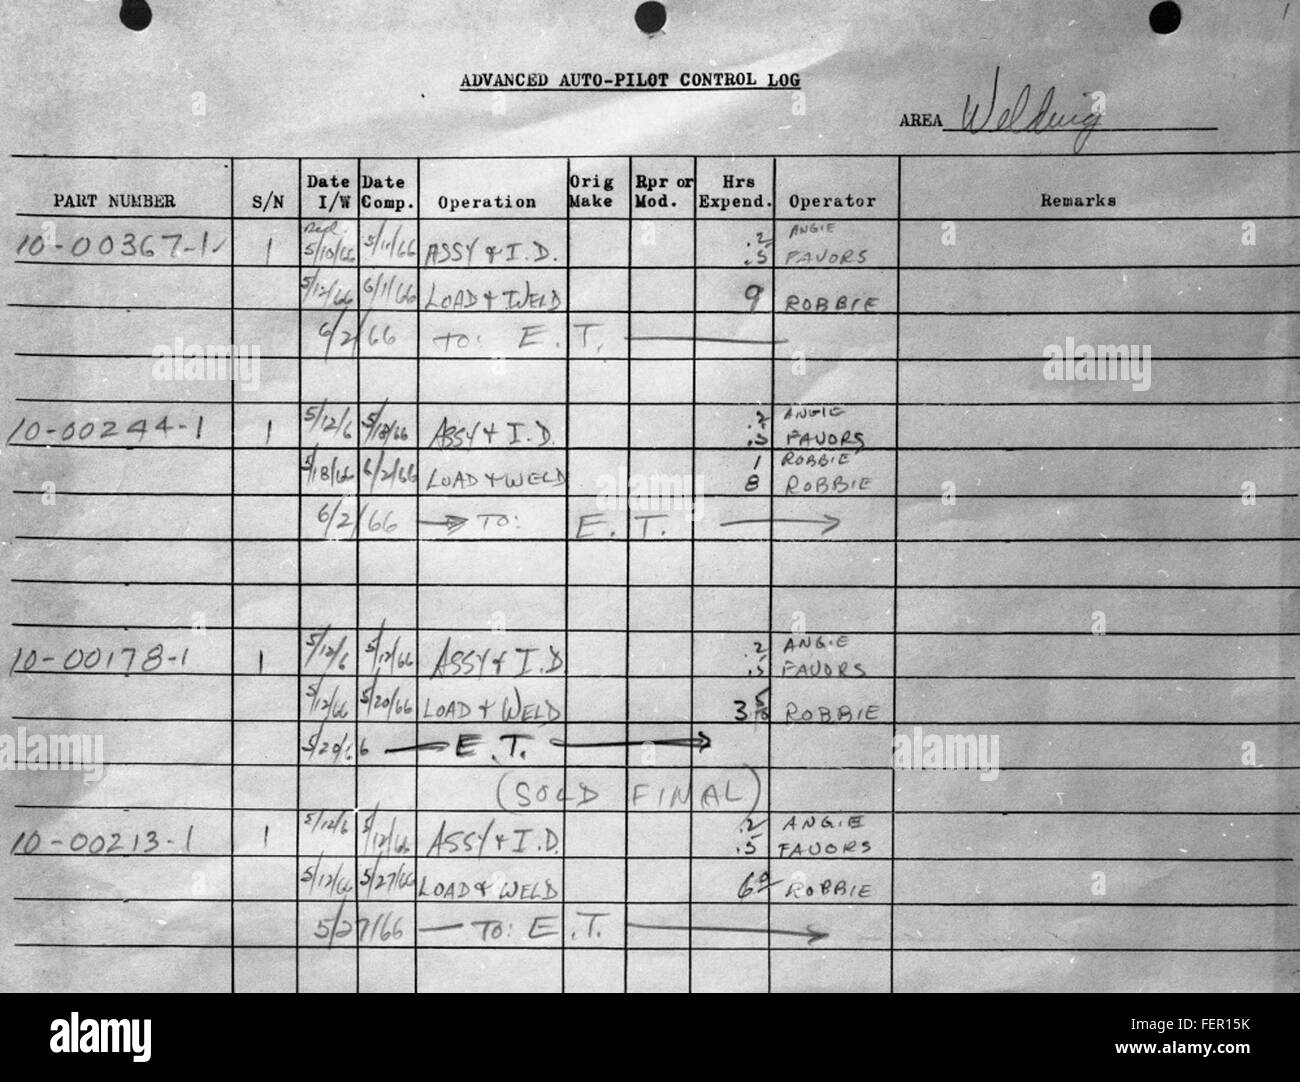 ADVANCED AUTO-PILOT CONTROL LOG
AREA Welding
PART NUMBER S/N Date I/W Date Comp. Operation Orig Make Rpr or Mod. Hrs Expend. Operator Remarks
10-00367-1 1 5/10/66 5/11/66 ASSY & I.D. .2 ANGIE
.5 FAVORS
5/12/66 6/1/66 LOAD & WELD 9 ROBBIE
6/2/66 TO: E.T.
10-00244-1 1 5/12/6 5/18/66 ASSY & I.D. .2 ANGIE
.5 FAVORS
5/18/66 6/2/66 LOAD & WELD 1 ROBBIE
8 ROBBIE
6/2/66 → TO: E.T. →
10-00178-1 1 5/12/6 5/12/66 ASSY & I.D. .2 ANGIE
.5 FAVORS
5/12/66 5/20/66 LOAD & WELD 3 ROBBIE
5/20/66 — E.T. →
(SOLD FINAL)
10-00213-1 1 5/12/6 5/12/66 ASSY & I.D. .2 ANGIE
.5 FAVORS
5/12/66 5/27/66 LOAD & WELD 6 ROBBIE
5/27/66 — TO: E.T. →
alamy
alamy
Image ID: FER15K
www.alamy.com